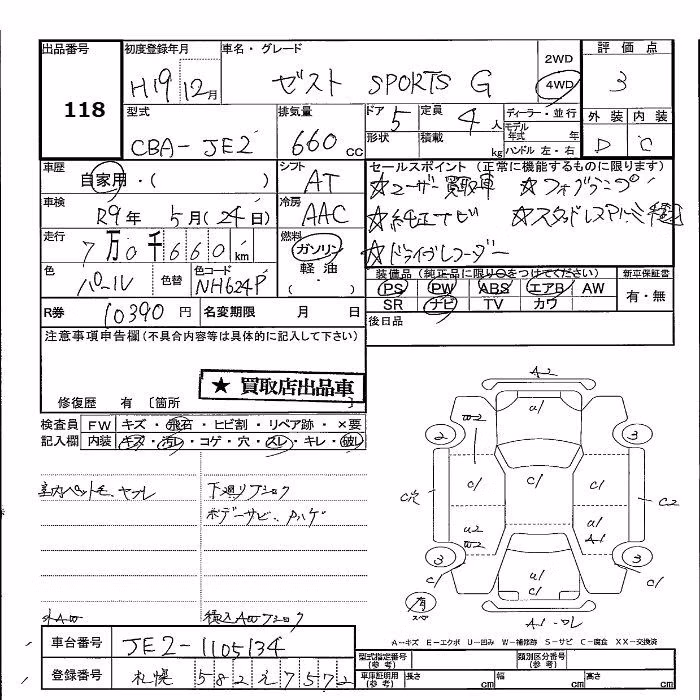 出品番号 初度登録年月 車名・グレード 評価点
118 H19 12月 ゼスト SPORTS G 2WD 4WD 3
型式 排気量 ドア 5 定員 4人 ディーラー・並行 外装 内装
CBA-JE2 660cc 形状 積載 kg モデル年式 年 D C
ハンドル 左・右
車歴 シフト セールスポイント (正常に機能するものに限ります)
自家用・( ) AT ☆ユーザー買取車 ☆フォグランプ
車検 R9年 5月(24日) 冷房 AAC ☆純正ナビ ☆スタッドレスアルミ積込
走行 7万0千660km 燃料 ガソリン ☆ドライブレコーダー
色 パール 色替 色コード NH624P 軽油 ( ・ ) 装備品(純正品に限り○をつけてください) 新車保証書
PS PW ABS エアB AW 有・無
R券 10390円 名変期限 月 日 SR ナビ TV カワ
注意事項申告欄(不具合内容等は具体的に記入して下さい) 後日品
★買取店出品車
修復歴 有 〔箇所 〕
検査員 FW キズ・飛石・ヒビ割・リペア跡・×要
記入欄 内装 キズ・汚レ・コゲ・穴・スレ・キレ・破レ
ヤブレ 下廻り
ボデーサビ・Pハゲ
A2
U1
2 W2 3
C1 C1 C1
C2
U2 U1
W2 A1
3 3
C1 U1 C1
C1
有
スペア
A-キズ E-エクボ U-凹み W-補修跡 S-サビ C-腐食 XX-交換済
車台番号 JE2-1105134 型式指定番号(参考) 類別区分番号(参考)
登録番号 札幌 582 え 7572 車庫証明用(参考) 長さ cm 幅 cm 高さ cm